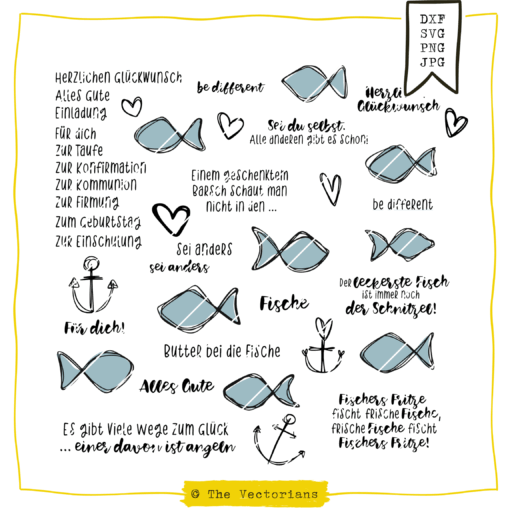 DXF
SVG
PNG
JPG
Herzlichen Glückwunsch
Alles Gute
Einladung
Für dich
zur Taufe
zur Konfirmation
zur Kommunion
zur Firmung
zum Geburtstag
zur Einschulung
be different
Glückwunsch
Sei du selbst.
Alle anderen gibt es schon!
Einem geschenkten
Barsch schaut man
nicht in den ...
be different
Sei anders
sei anders
Der leckerste Fisch
ist immer noch
der Schnitzel!
Fische
Für dich!
Butter bei die Fische
Alles Gute
Fischers Fritze
fischt frische Fische,
frische Fische fischt
Fischers Fritze!
Es gibt viele Wege zum Glück
... einer davon ist angeln
© The Vectorians